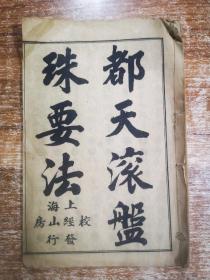 都天滾盤
珠要法
上海
校經山房
發行